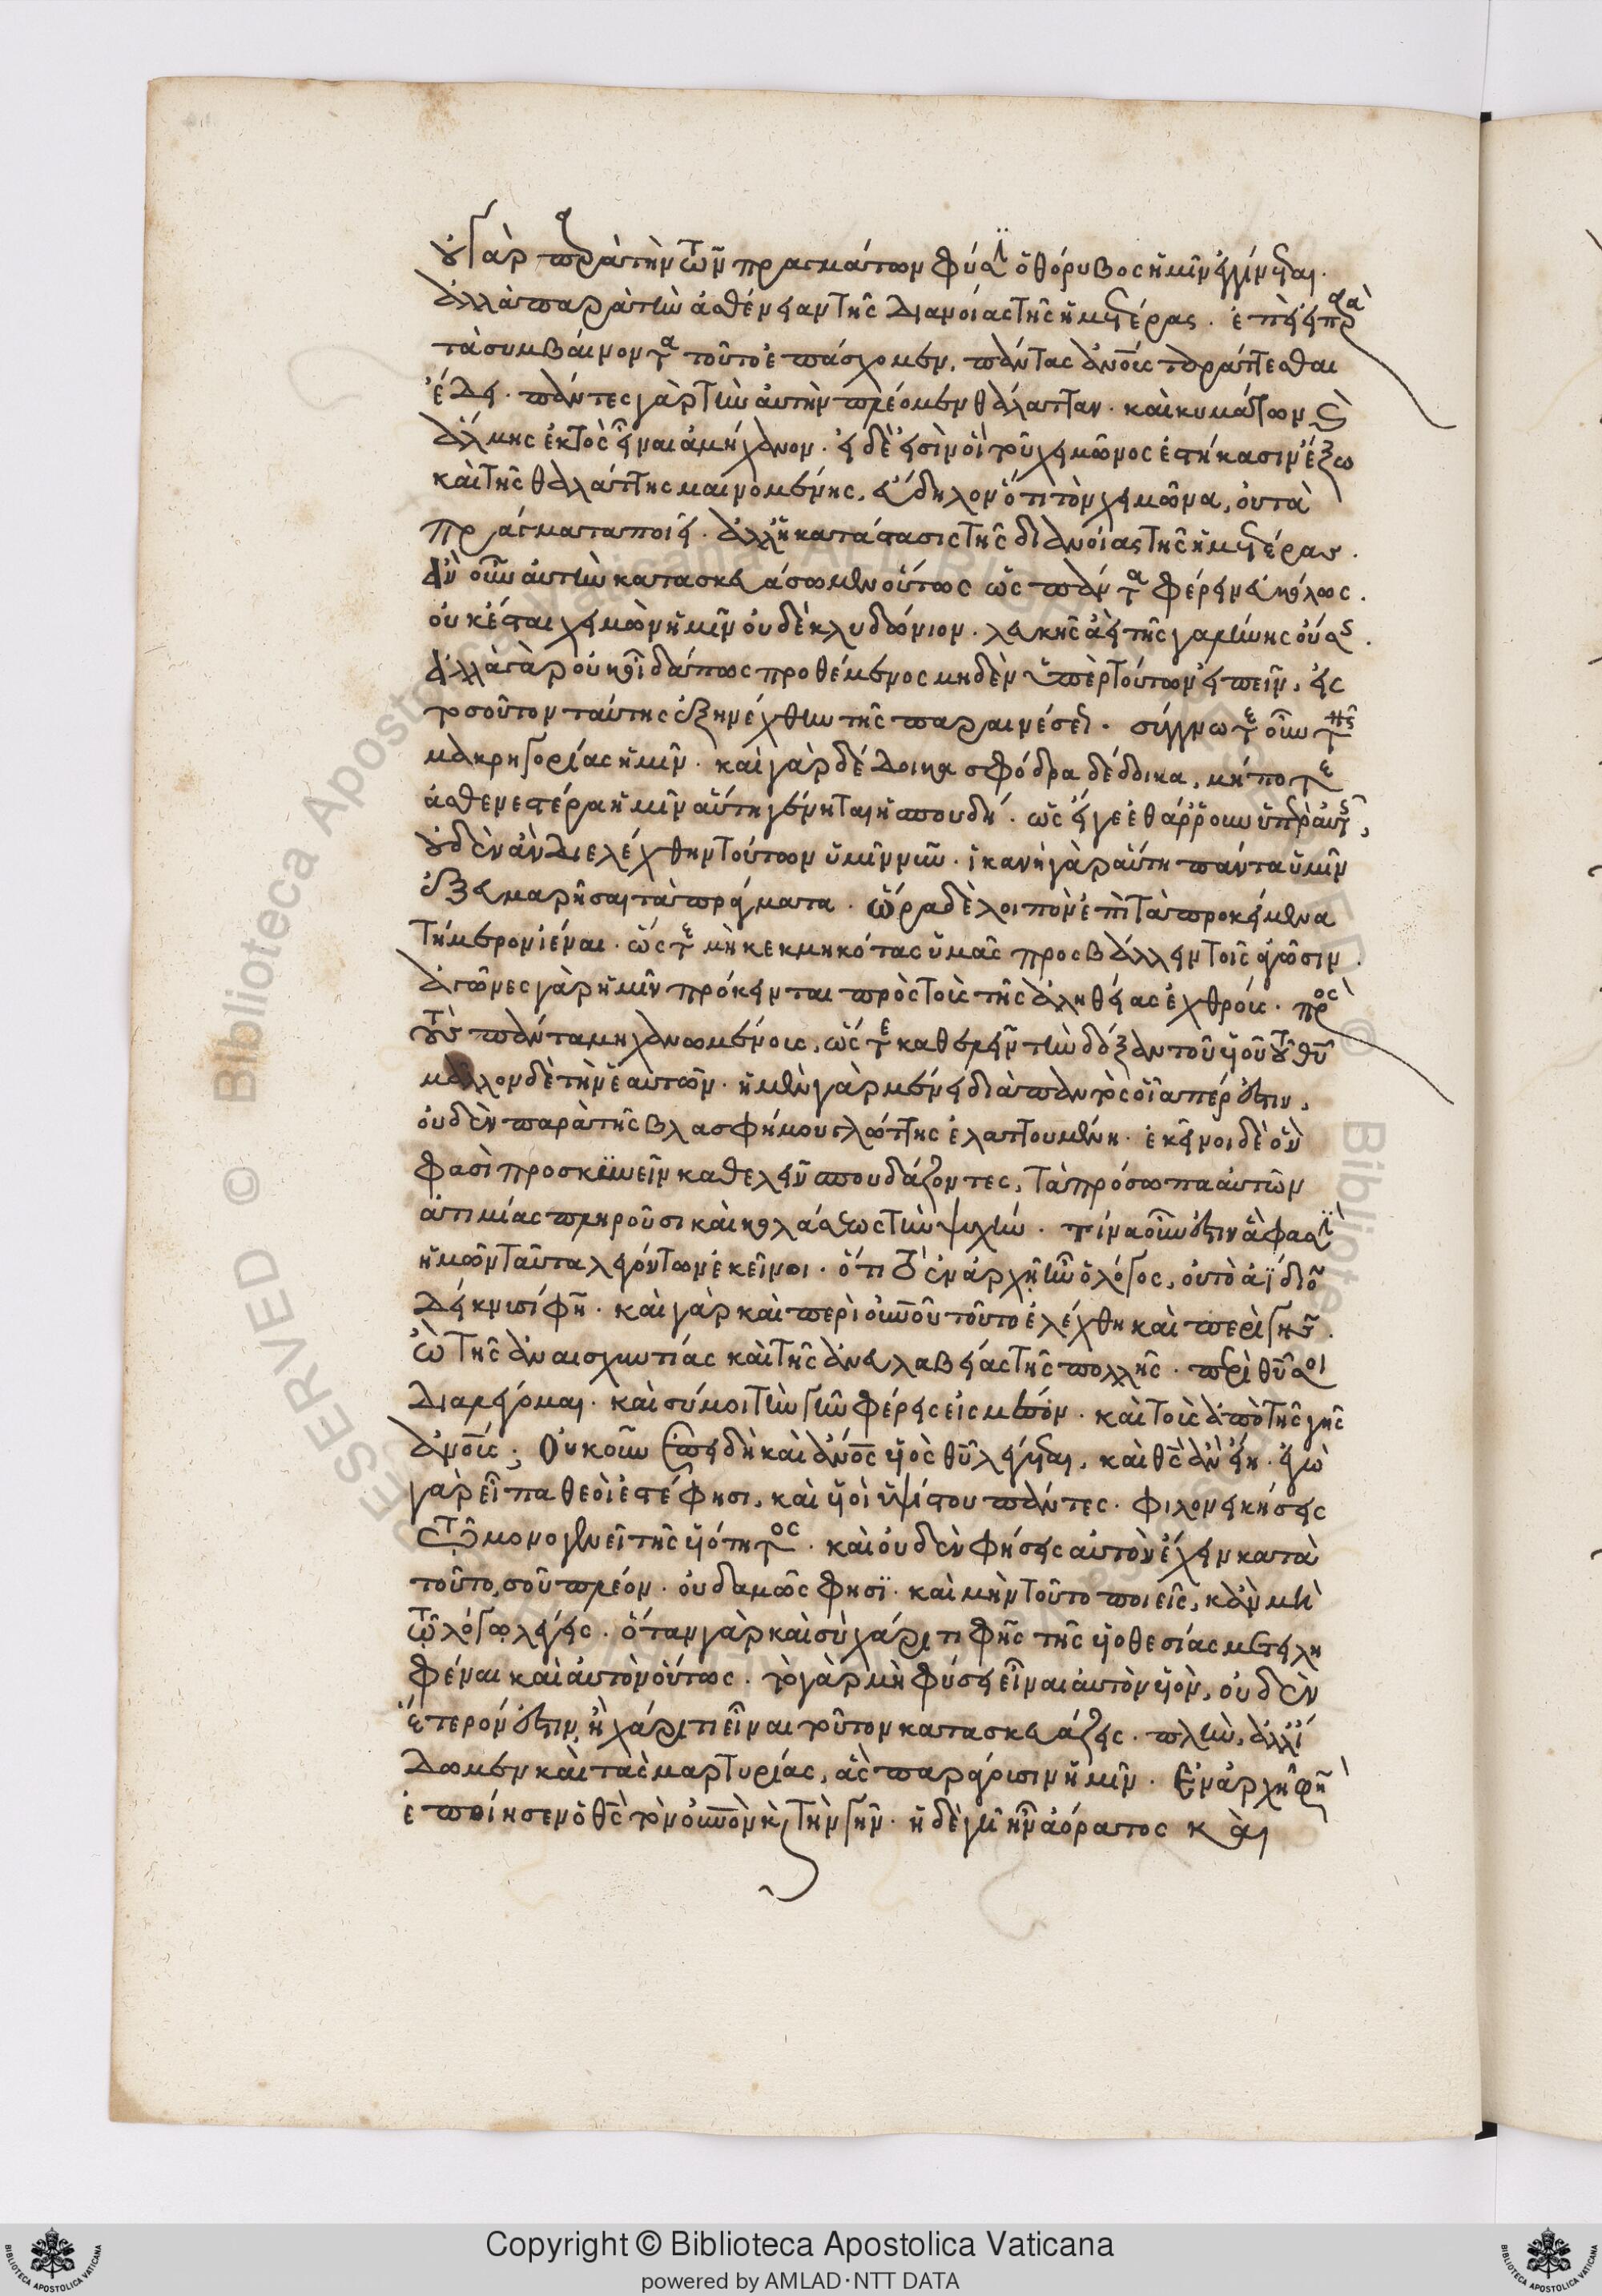 οὐ γὰρ παρὰ τὴν τῶν πραγμάτων φύσιν ὁ θόρυβος ἡμῖν ἐγγίνεται.
ἀλλὰ παρὰ τὴν ἀσθένειαν τῆς διανοίας τῆς ἡμετέρας. ἐπεὶ εἰ παρὰ
τὰ συμβαίνοντα τοῦτο ἐπάσχομεν, πάντας ἀνοῖς ταράττεσθαι
ἔδει. πάντες γὰρ τὴν αὐτὴν πλέομεν θάλατταν. καὶ κυμάτων καὶ
ἅλμης ἐκτὸς εἶναι ἀμήχανον. εἰ δὲ εἰσὶν οἳ τοῦ χειμῶνος ἑστήκασιν ἔξω
καὶ τῆς θαλάττης μαινομένης, εὔδηλον ὅτι τὸν χειμῶνα, οὐ τὰ
πράγματα ποιεῖ. ἀλλ' ἡ κατάστασις τῆς διανοίας τῆς ἡμετέρας.
ἂν οὖν αὐτὴν κατασκευάσωμεν οὕτως ὡς πάντα φέρειν εὐκόλως.
οὐκ ἔσται χειμὼν ἡμῖν οὐδὲ κλυδώνιον. λευκῆς ἀεὶ τῆς γαλήνης οὔσης.
ἀλλὰ γὰρ οὐκ οἶδα πως προθέμενος μηδὲν ὑπὲρ τούτων εἰπεῖν, εἰς
τοσοῦτον ταύτης ἐξηνέχθην τῆς παραινέσεως. σύγγνωτε οὖν τῆς
μακρηγορίας ἡμῖν. καὶ γὰρ δέδοικα σφόδρα δέδοικα, μήποτε
ἀσθενεστέρα ἡμῖν αὕτη γένηται ἡ σπουδή. ὡς εἴγε ἐθάρρουν ὑπὲρ αὐτῆς,
οὐδὲν ἂν διελέχθην τούτων ὑμῖν νῦν. ἱκανὴ γὰρ αὕτη πάντα ὑμῖν
ἐξευμαρῆσαι τὰ πράγματα. ὥρα δὲ λοιπὸν ἐπὶ τὰ προκείμενα
τήμερον ἰέναι. ὥστε μὴ κεκμηκότας ὑμᾶς προσβάλλειν τοῖς ἀγῶσιν.
ἀγῶνες γὰρ ἡμῖν πρόκεινται πρὸς τοὺς τῆς ἀληθείας ἐχθρούς. πρὸς
τοὺς πάντα μηχανωμένους, ὥστε καθελεῖν τὴν δόξαν τοῦ υἱοῦ τοῦ θῦ
μᾶλλον δὲ τὴν ἑαυτῶν. ἡ μὲν γὰρ μένει διὰ παντὸς οἵα πέρ ἐστιν,
οὐδὲν παρὰ τῆς βλασφήμου γλώττης ἐλαττουμένη. ἐκεῖνοι δὲ ὃν
φασὶ προσκυνεῖν καθελεῖν σπουδάζοντες, τὰ πρόσωπα αὐτῶν
ἀτιμίας πληροῦσι καὶ κολάσεως τὴν ψυχήν. τίνα οὖν ἐστιν ἅ φασι
ἡμῶν ταῦτα λεγόντων ἐκεῖνοι. ὅτι τὸ ἐν ἀρχῇ ἦν ὁ λόγος, οὐ τὸ ἀΐδιον
δείκνυσί φη. καὶ γὰρ καὶ περὶ οὐνοῦ τοῦτο ἐλέχθη καὶ περὶ γῆς.
ὢ τῆς ἀναισχυντίας καὶ τῆς ἀνευλαβείας τῆς πολλῆς. περὶ θῦ σοι
διαλέγομαι. καὶ σύ μοι τὴν γῆν φέρεις εἰς μέσον. καὶ τοὺς ἀπὸ τῆς γῆς
ἀνοῖς; Οὐκοῦν ἐπειδὴ καὶ ἄνος υἱὸς θῦ λέγεται, καὶ θς ἂν εἴη. ἐγὼ
γὰρ εἶπα θεοὶ ἐστέ φησι, καὶ υἱοὶ ὑψίστου πάντες. φιλονεικήσεις
τῷ μονογενεῖ τῆς υἱότητος. καὶ οὐδὲν φήσεις αὐτὸν ἔχειν κατὰ
τοῦτο, σοῦ πλέον. οὐδαμῶς φησϊ. καὶ μὴν τοῦτο ποιεῖς, κἂν μὴ
τῷ λόγῳ λέγεις. ὅταν γὰρ καὶ σὺ χάριτι φῇς τῆς υἱοθεσίας μετειλη
φέναι καὶ αὐτὸν οὕτως. τὸ γὰρ μὴ φύσει εἶναι αὐτὸν υἱόν, οὐδὲν
ἕτερόν ἐστιν, ἢ χάριτι εἶναι τοῦτον κατασκευάζεις. πλὴν, ἀλλ' ἴ
δωμεν καὶ τὰς μαρτυρίας, ἃς παράγουσιν ἡμῖν. Ἐν ἀρχῇ φη
ἐποίησεν ὁ θς τὸν οὐνὸν καὶ τὴν γῆν. ἡ δὲ γῆ ἦν ἀόρατος καὶ
Copyright © Biblioteca Apostolica Vaticana
powered by AMLAD·NTT DATA